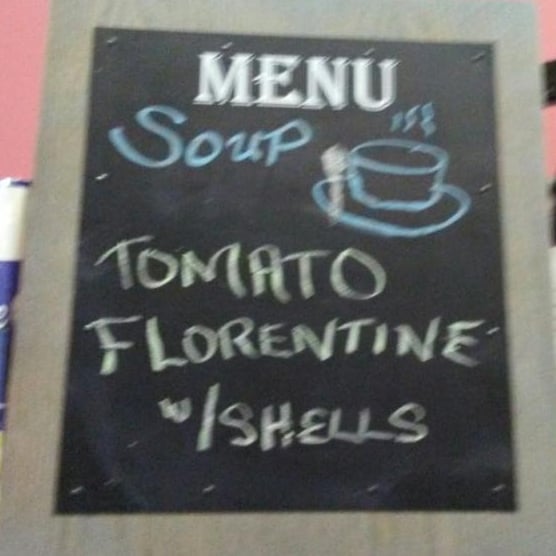 MENU
Soup
TOMATO
FLORENTINE
w/SHELLS